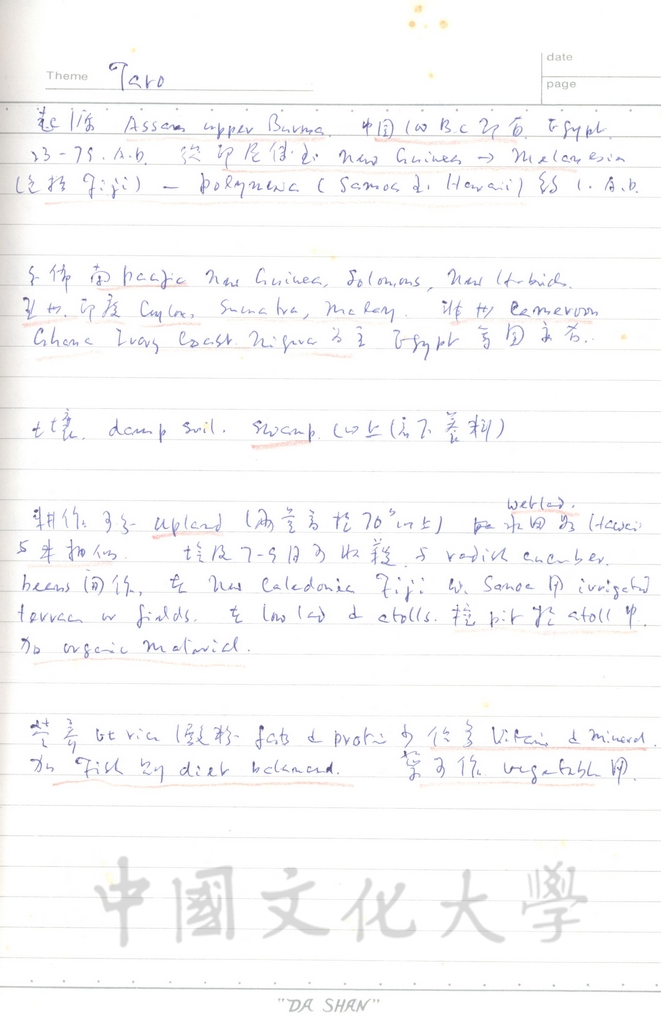 date
Theme Taro
page
起源 Assam upper Burma. 中国 100 B.C 即有. Egypt
23-79. A.D. 從印尼傳至 New Guinea → Melanesia
(包括 Fiji) — polynesia (Samoa to Hawaii) 1. A.D.
分佈 南 pacific New Guinea, Solomons, New Hebrids.
亞州. 印度 Ceylon, Sumatra, Malay. 非州 Cameroon
Ghana Ivory Coast Nigera 为主 Egypt
土壤. damp soil. swamp. 以上 養料)
wetland.
耕作: upland (雨量高於 70" 以上) 水田 Hawai
5 7-9 月可收穫. 与 radish cucumber.
beans 间作. 在 New Caledonia Fiji W. Samoa 用 irrigated
terraces or fields. 在 low land & atolls. 挖 pit 於 atoll 中.
加 organic material.
營養 rice 澱粉 fats & protein 少 Vitamin & mineral.
加 Fish 则 diet balanced. 葉可作 vegetable 用.
中國文化大學
"DA SHAN"